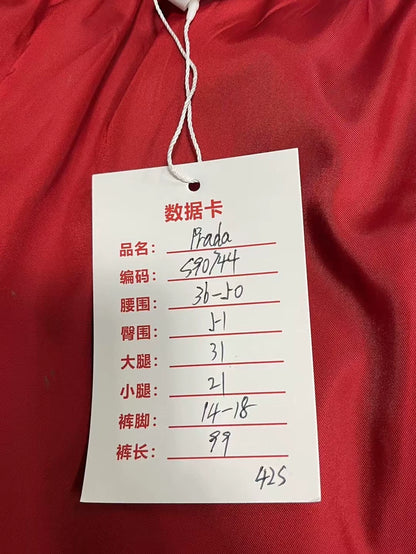 数据卡
品名: Prada
编码: S90744
腰围: 36-50
臀围: 51
大腿: 31
小腿: 21
裤脚: 14-18
裤长: 99
42S